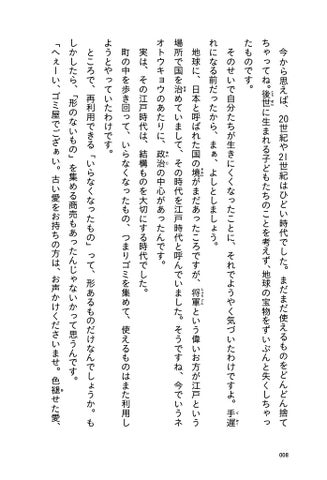 今から思えば、20世紀や21世紀はひどい時代でした。まだまだ使えるものをどんどん捨て
ちゃってね。後世に生まれる子どもたちのことを考えず、地球の宝物をずいぶんと失くしちゃっ
たものです。
そのせいで自分たちが生きにくくなったことに、それでようやく気づいたわけですよ。手遅
れになる前だったから、まぁ、よしとしましょう。
地球に、日本と呼ばれた国の境がまだあったころですが、将軍という偉いお方が江戸という
場所で国を治めていまして、その時代を江戸時代と呼んでいました。そうですね、今でいうネ
オトウキョウのあたりに、政治の中心があったんです。
実は、その江戸時代は、結構ものを大切にする時代でした。
町の中を歩き回って、いらなくなったもの、つまりゴミを集めて、使えるものはまた利用し
ようとやっていたわけです。
ところで、再利用できる「いらなくなったもの」って、形あるものだけなんでしょうか。も
しかしたら、「形のないもの」を集める商売もあったんじゃないかって思うんです。
「へぇーい、ゴミ屋でござぁい。古い愛をお持ちの方は、お声かけくださいませ。色褪せた愛、
008